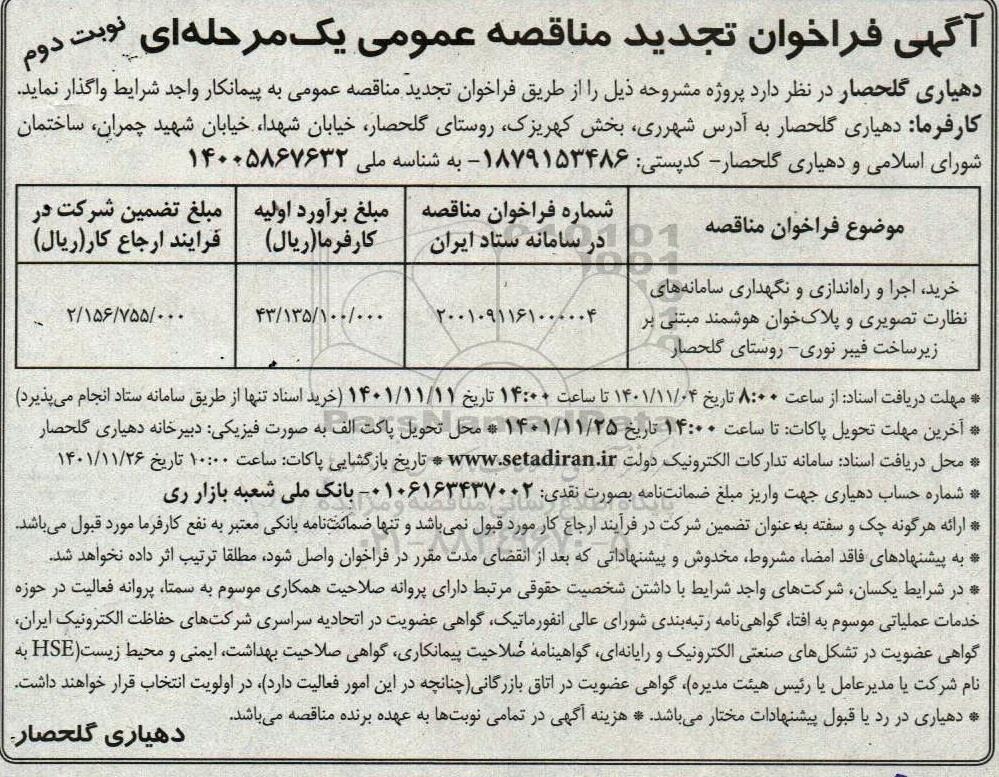 آگهی فراخوان تجدید مناقصه عمومی یک‌مرحله‌ای نوبت دوم
دهیاری گلحصار در نظر دارد پروژه مشروحه ذیل را از طریق فراخوان تجدید مناقصه عمومی به پیمانکار واجد شرایط واگذار نماید.
کارفرما: دهیاری گلحصار به آدرس شهرری، بخش کهریزک، روستای گلحصار، خیابان شهدا، خیابان شهید چمران، ساختمان
شورای اسلامی و دهیاری گلحصار- کدپستی: ۱۸۷۹۱۵۳۴۸۶- به شناسه ملی ۱۴۰۰۵۸۶۷۶۳۲
موضوع فراخوان مناقصه
شماره فراخوان مناقصه
در سامانه ستاد ایران
مبلغ برآورد اولیه
کارفرما(ریال)
مبلغ تضمین شرکت در
فرایند ارجاع کار(ریال)
خرید، اجرا و راه‌اندازی و نگهداری سامانه‌های
نظارت تصویری و پلاک‌خوان هوشمند مبتنی بر
زیرساخت فیبر نوری- روستای گلحصار
۲۰۰۱۰۹۱۱۶۱۰۰۰۰۰۴
۴۳/۱۳۵/۱۰۰/۰۰۰
۲/۱۵۶/۷۵۵/۰۰۰
* مهلت دریافت اسناد: از ساعت ۸:۰۰ تاریخ ۱۴۰۱/۱۱/۰۴ تا ساعت ۱۴:۰۰ تاریخ ۱۴۰۱/۱۱/۱۱ (خرید اسناد تنها از طریق سامانه ستاد انجام می‌پذیرد)
* آخرین مهلت تحویل پاکات: تا ساعت ۱۴:۰۰ تاریخ ۱۴۰۱/۱۱/۲۵ * محل تحویل پاکت الف به صورت فیزیکی: دبیرخانه دهیاری گلحصار
* محل دریافت اسناد: سامانه تدارکات الکترونیک دولت www.setadiran.ir * تاریخ بازگشایی پاکات: ساعت ۱۰:۰۰ تاریخ ۱۴۰۱/۱۱/۲۶
* شماره حساب دهیاری جهت واریز مبلغ ضمانت‌نامه بصورت نقدی: ۰۱۰۶۱۶۳۴۳۷۰۰۲- بانک ملی شعبه بازار ری
* ارائه هرگونه چک و سفته به عنوان تضمین شرکت در فرآیند ارجاع کار مورد قبول نمی‌باشد و تنها ضمانت‌نامه بانکی معتبر به نفع کارفرما مورد قبول می‌باشد.
* به پیشنهادهای فاقد امضا، مشروط، مخدوش و پیشنهاداتی که بعد از انقضای مدت مقرر در فراخوان واصل شود، مطلقا ترتیب اثر داده نخواهد شد.
* در شرایط یکسان، شرکت‌های واجد شرایط با داشتن شخصیت حقوقی مرتبط دارای پروانه صلاحیت همکاری موسوم به سمتا، پروانه فعالیت در حوزه
خدمات عملیاتی موسوم به افتا، گواهی‌نامه رتبه‌بندی شورای عالی انفورماتیک، گواهی عضویت در اتحادیه سراسری شرکت‌های حفاظت الکترونیک ایران،
گواهی عضویت در تشکل‌های صنعتی الکترونیک و رایانه‌ای، گواهینامه صلاحیت پیمانکاری، گواهی صلاحیت بهداشت، ایمنی و محیط زیست(HSE به
نام شرکت یا مدیرعامل یا رئیس هیئت مدیره)، گواهی عضویت در اتاق بازرگانی(چنانچه در این امور فعالیت دارد)، در اولویت انتخاب قرار خواهند داشت.
* دهیاری در رد یا قبول پیشنهادات مختار می‌باشد. * هزینه آگهی در تمامی نوبت‌ها به عهده برنده مناقصه می‌باشد.
دهیاری گلحصار
ParsNamadData